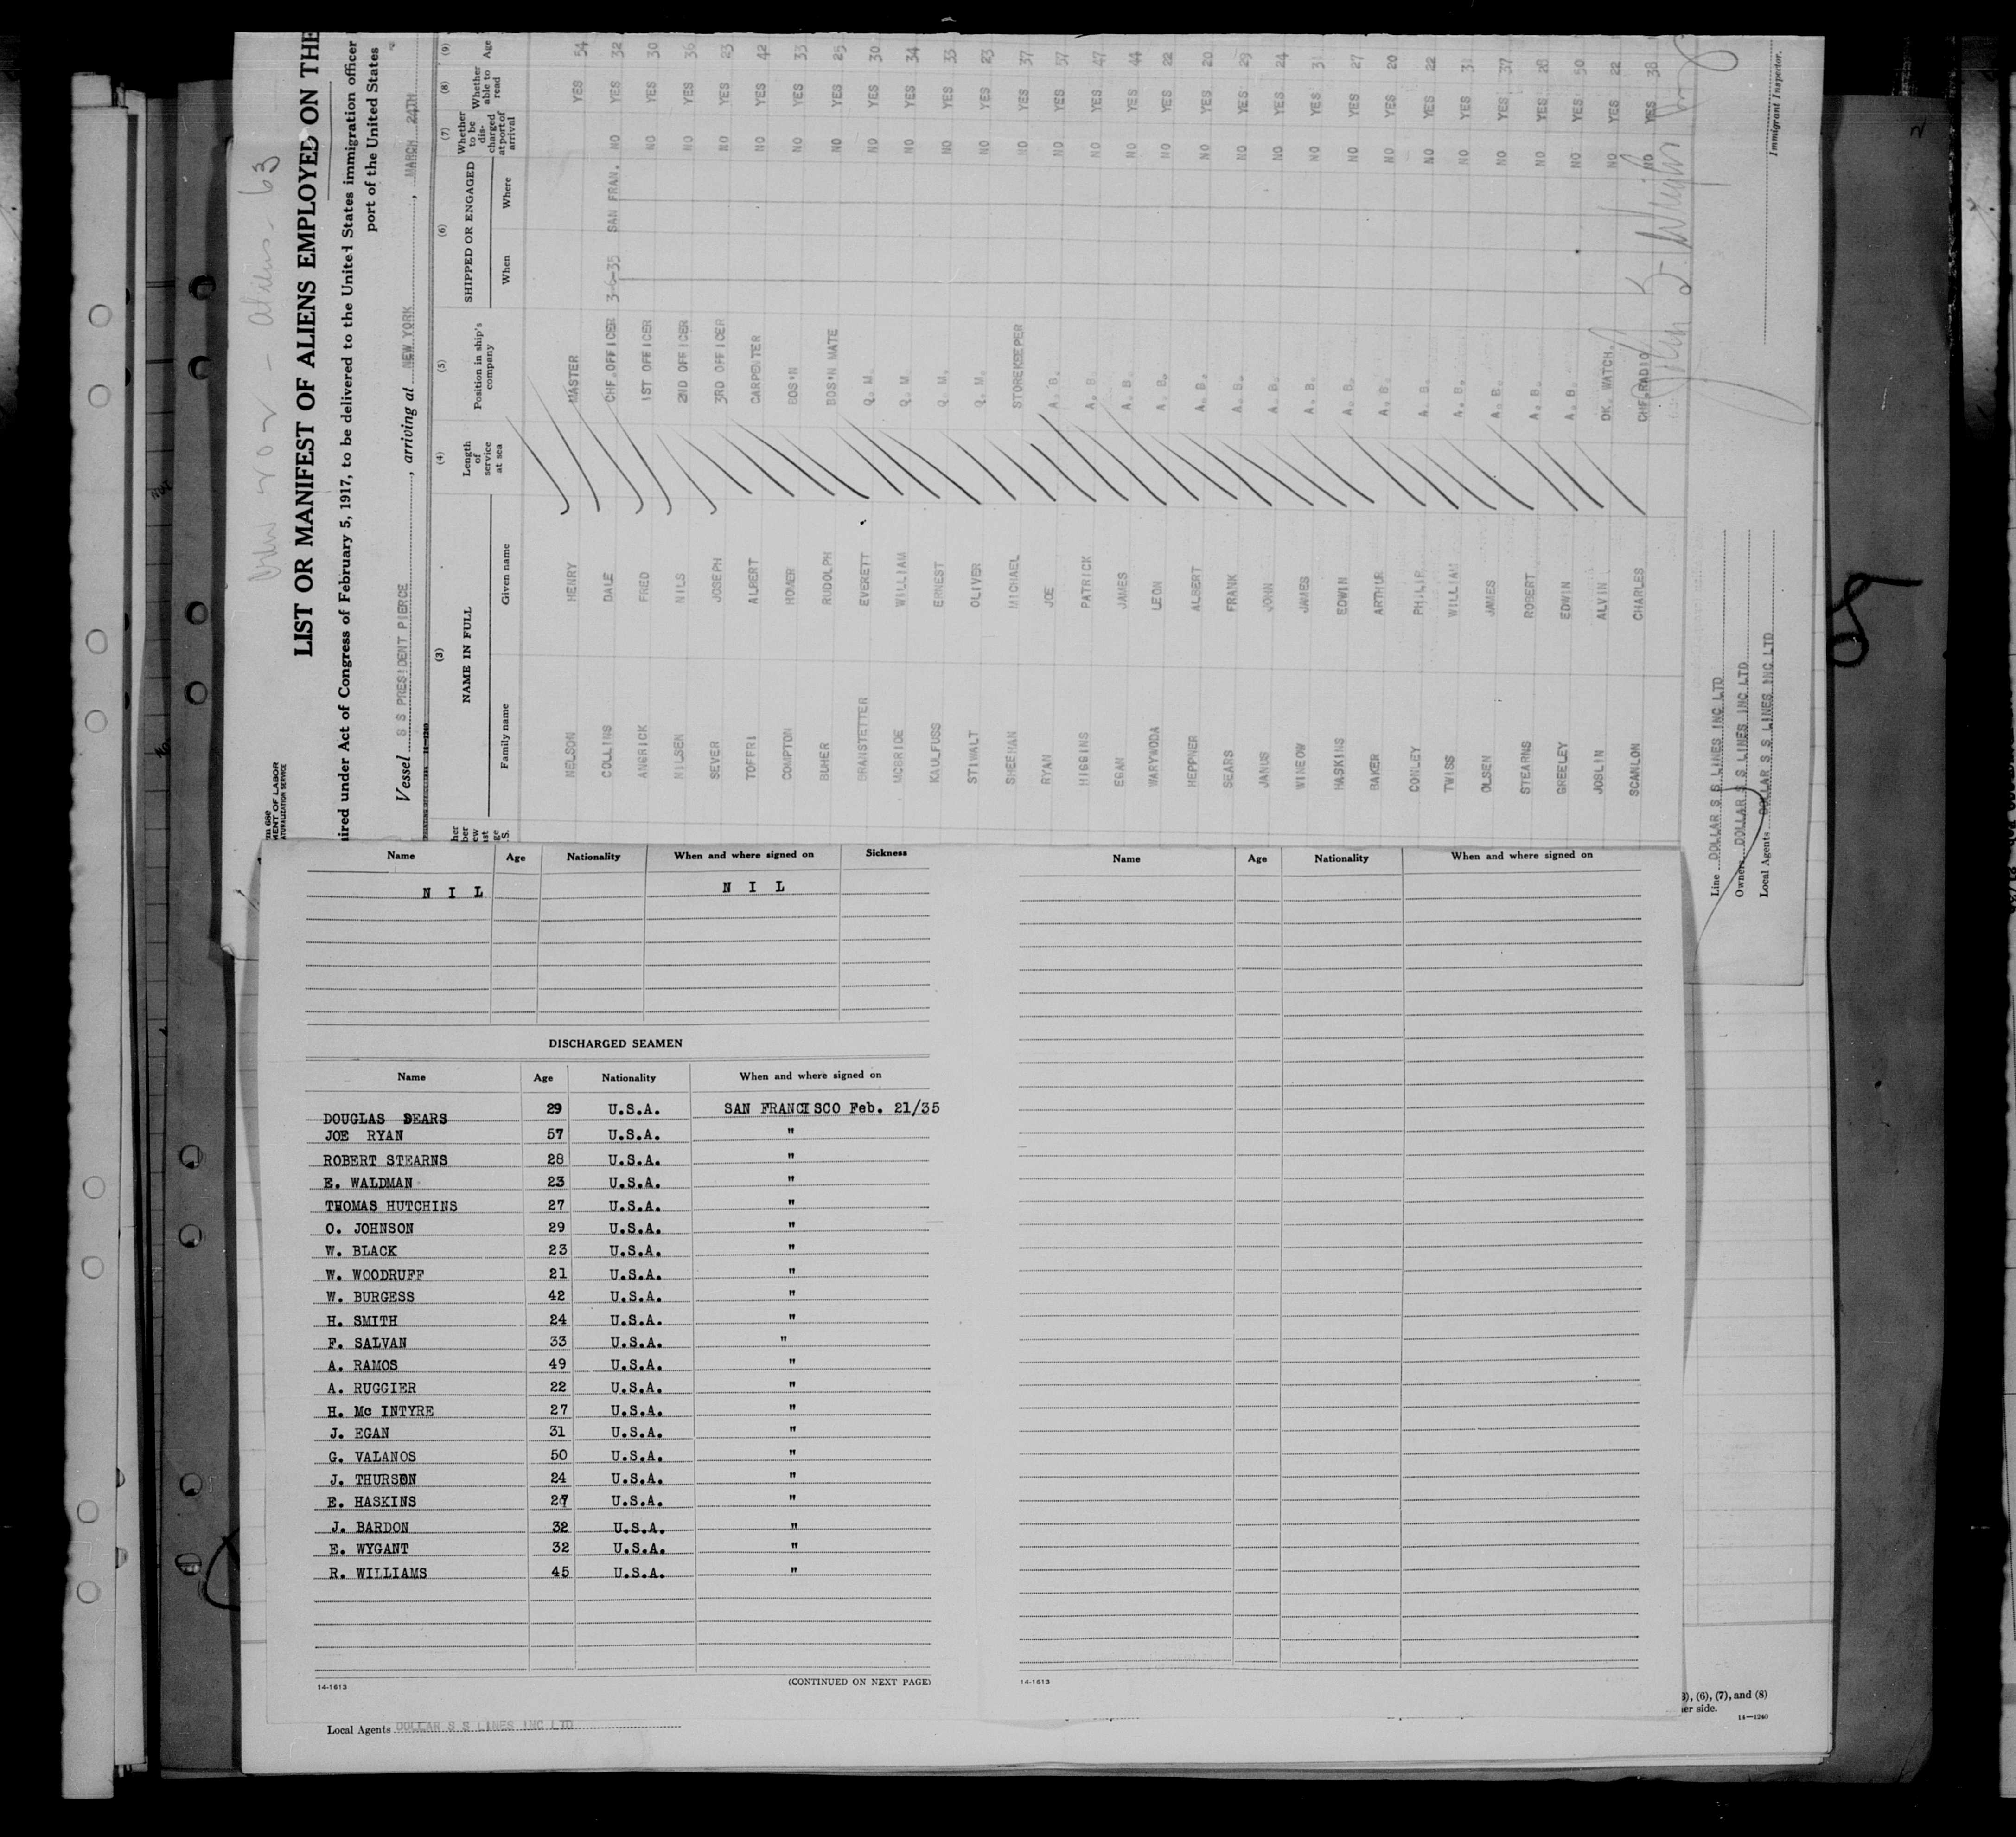 Crew 202 - Aliens - 63
LIST OR MANIFEST OF ALIENS EMPLOYED ON THE
ired under Act of Congress of February 5, 1917, to be delivered to the United States immigration officer
port of the United States
MENT OF LABOR
Vessel S S PRESIDENT PIERCE, arriving at NEW YORK, MARCH 24TH
(3) (4) (5) (6) (7) (8) (9)
NAME IN FULL
Family name Given name
Length of service at sea
Position in ship's company
SHIPPED OR ENGAGED
When Where
Whether to be discharged at port of arrival
Whether able to read
Age
NELSON HENRY MASTER YES 54
COLLINS DALE CHF.OFFICER 3-6-35 SAN FRAN. NO YES 32
ANGRICK FRED 1ST OFFICER NO YES 30
NILSEN NILS 2ND OFFICER NO YES 36
SEVER JOSEPH 3RD OFFICER NO YES 23
TOFFRI ALBERT CARPENTER NO YES 42
COMPTON HOMER BOS'N NO YES 33
BUHER RUDOLPH BOS'N MATE NO YES 25
BRANSTETTER EVERETT Q. M. NO YES 30
MCBRIDE WILLIAM Q. M. NO YES 34
KAULFUSS ERNEST Q. M. NO YES 33
STIWALT OLIVER Q. M. NO YES 23
SHEEHAN MICHAEL STOREKEEPER NO YES 37
RYAN JOE A. B. NO YES 57
HIGGINS PATRICK A. B. NO YES 47
EGAN JAMES A. B. NO YES 44
WARYWODA LEON A. B. NO YES 22
HEPPNER ALBERT A. B. NO YES 20
SEARS FRANK A. B. NO YES 29
JANUS JOHN A. B. NO YES 24
WINEOW JAMES A. B. NO YES 31
HASKINS EDWIN A. B. NO YES 27
BAKER ARTHUR A. B. NO YES 20
CONLEY PHILIP A. B. NO YES 22
TWISS WILLIAM A. B. NO YES 31
OLSEN JAMES A. B. NO YES 37
STEARNS ROBERT A. B. NO YES 28
GREELEY EDWIN A. B. NO YES 50
JOSLIN ALVIN DK. WATCH. NO YES 22
SCANLON CHARLES CHF.RADIO NO YES 38
Immigrant Inspector.
Line DOLLAR S S LINES INC LTD
Owners DOLLAR S S LINES INC LTD
Local Agents DOLLAR S S LINES INC LTD
Name Age Nationality When and where signed on Sickness
N I L N I L
DISCHARGED SEAMEN
Name Age Nationality When and where signed on
DOUGLAS SEARS 29 U.S.A. SAN FRANCISCO Feb. 21/35
JOE RYAN 57 U.S.A. "
ROBERT STEARNS 28 U.S.A. "
E. WALDMAN 23 U.S.A. "
THOMAS HUTCHINS 27 U.S.A. "
O. JOHNSON 29 U.S.A. "
W. BLACK 23 U.S.A. "
W. WOODRUFF 21 U.S.A. "
W. BURGESS 42 U.S.A. "
H. SMITH 24 U.S.A. "
F. SALVAN 33 U.S.A. "
A. RAMOS 49 U.S.A. "
A. RUGGIER 22 U.S.A. "
H. Mc INTYRE 27 U.S.A. "
J. EGAN 31 U.S.A. "
G. VALANOS 50 U.S.A. "
J. THURSEN 24 U.S.A. "
E. HASKINS 27 U.S.A. "
J. BARDON 32 U.S.A. "
E. WYGANT 32 U.S.A. "
R. WILLIAMS 45 U.S.A. "
14-1613 (CONTINUED ON NEXT PAGE)
Name Age Nationality When and where signed on
14-1613
Local Agents DOLLAR S S LINES INC LTD
, (6), (7), and (8)
er side.
14—1240